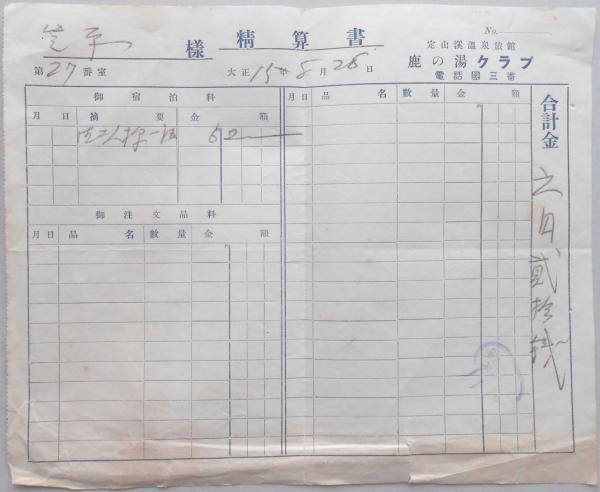 No.
様 精算書
定山溪温泉旅館
鹿の湯クラブ
電話國三番
第27番室 大正15年8月26日
御宿泊料
月 日 摘要 金額
62
御注文品料
月 日 品名 数量 金額
月 日 品名 数量 金額
合計金
六円貳拾銭